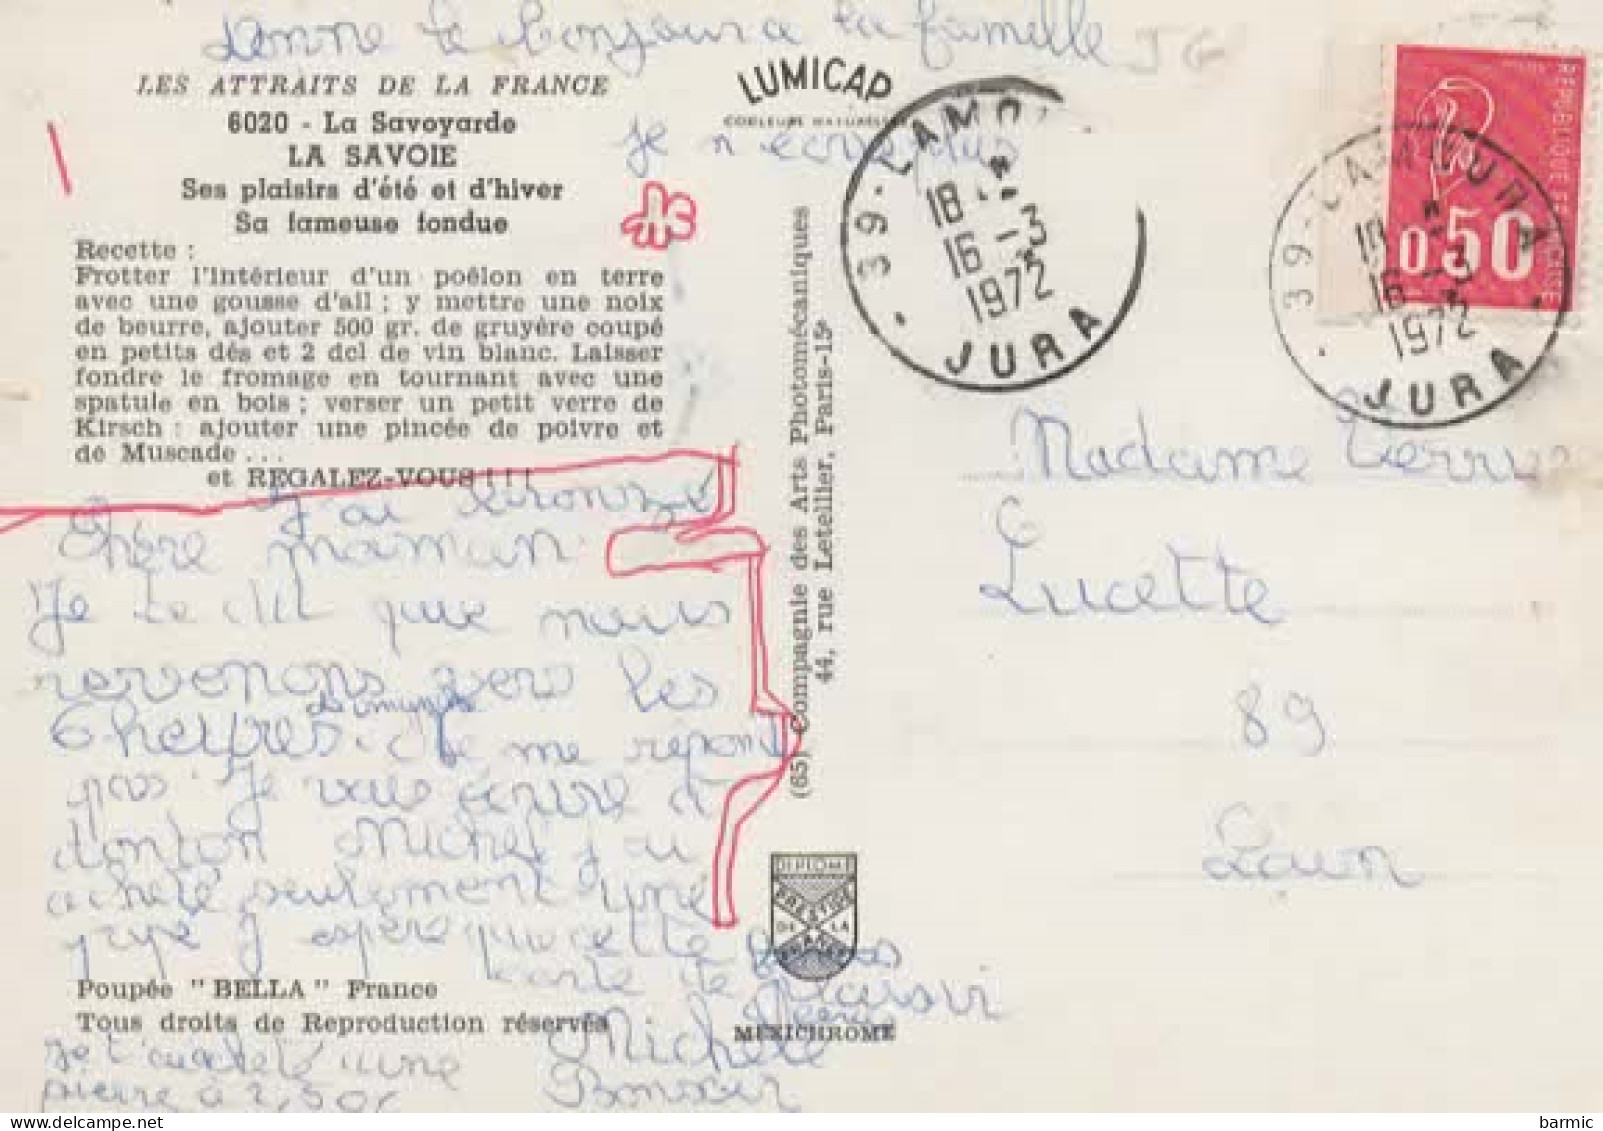 donne le bonjour a la famille
LES ATTRAITS DE LA FRANCE
6020 - La Savoyarde
LA SAVOIE
Ses plaisirs d'été et d'hiver
Sa fameuse fondue
Recette :
Frotter l'intérieur d'un poêlon en terre
avec une gousse d'ail ; y mettre une noix
de beurre, ajouter 500 gr. de gruyère coupé
en petits dés et 2 dcl de vin blanc. Laisser
fondre le fromage en tournant avec une
spatule en bois ; verser un petit verre de
Kirsch : ajouter une pincée de poivre et
de Muscade ...
et REGALEZ-VOUS !!!
J'ai bronzé
Chère maman
Je te dit que nous
revenons vers les
6 heures. me répond
pas. Je vais écrire à
tonton Michel j'ai
acheté seulement une
J'espère que cette
carte de
plaisir
Michèle
Je t'ai acheté une
pierre à 2,50
Poupée "BELLA" France
Tous droits de Reproduction réservés
LUMICAP
COULEURS NATURELLES
je n'écris plus
(65) Compagnie des Arts Photomécaniques
44, rue Letellier, Paris-15e
DIPLOME
PRESTIGE
DE LA
FRANCE
MEXICHROME
39 - LAMO
18
16 - 3
1972
JURA
REPUBLIQUE FRANCAISE
0,50
39 - LAMOURA
18
16 - 3
1972
JURA
Madame
Lucette
89